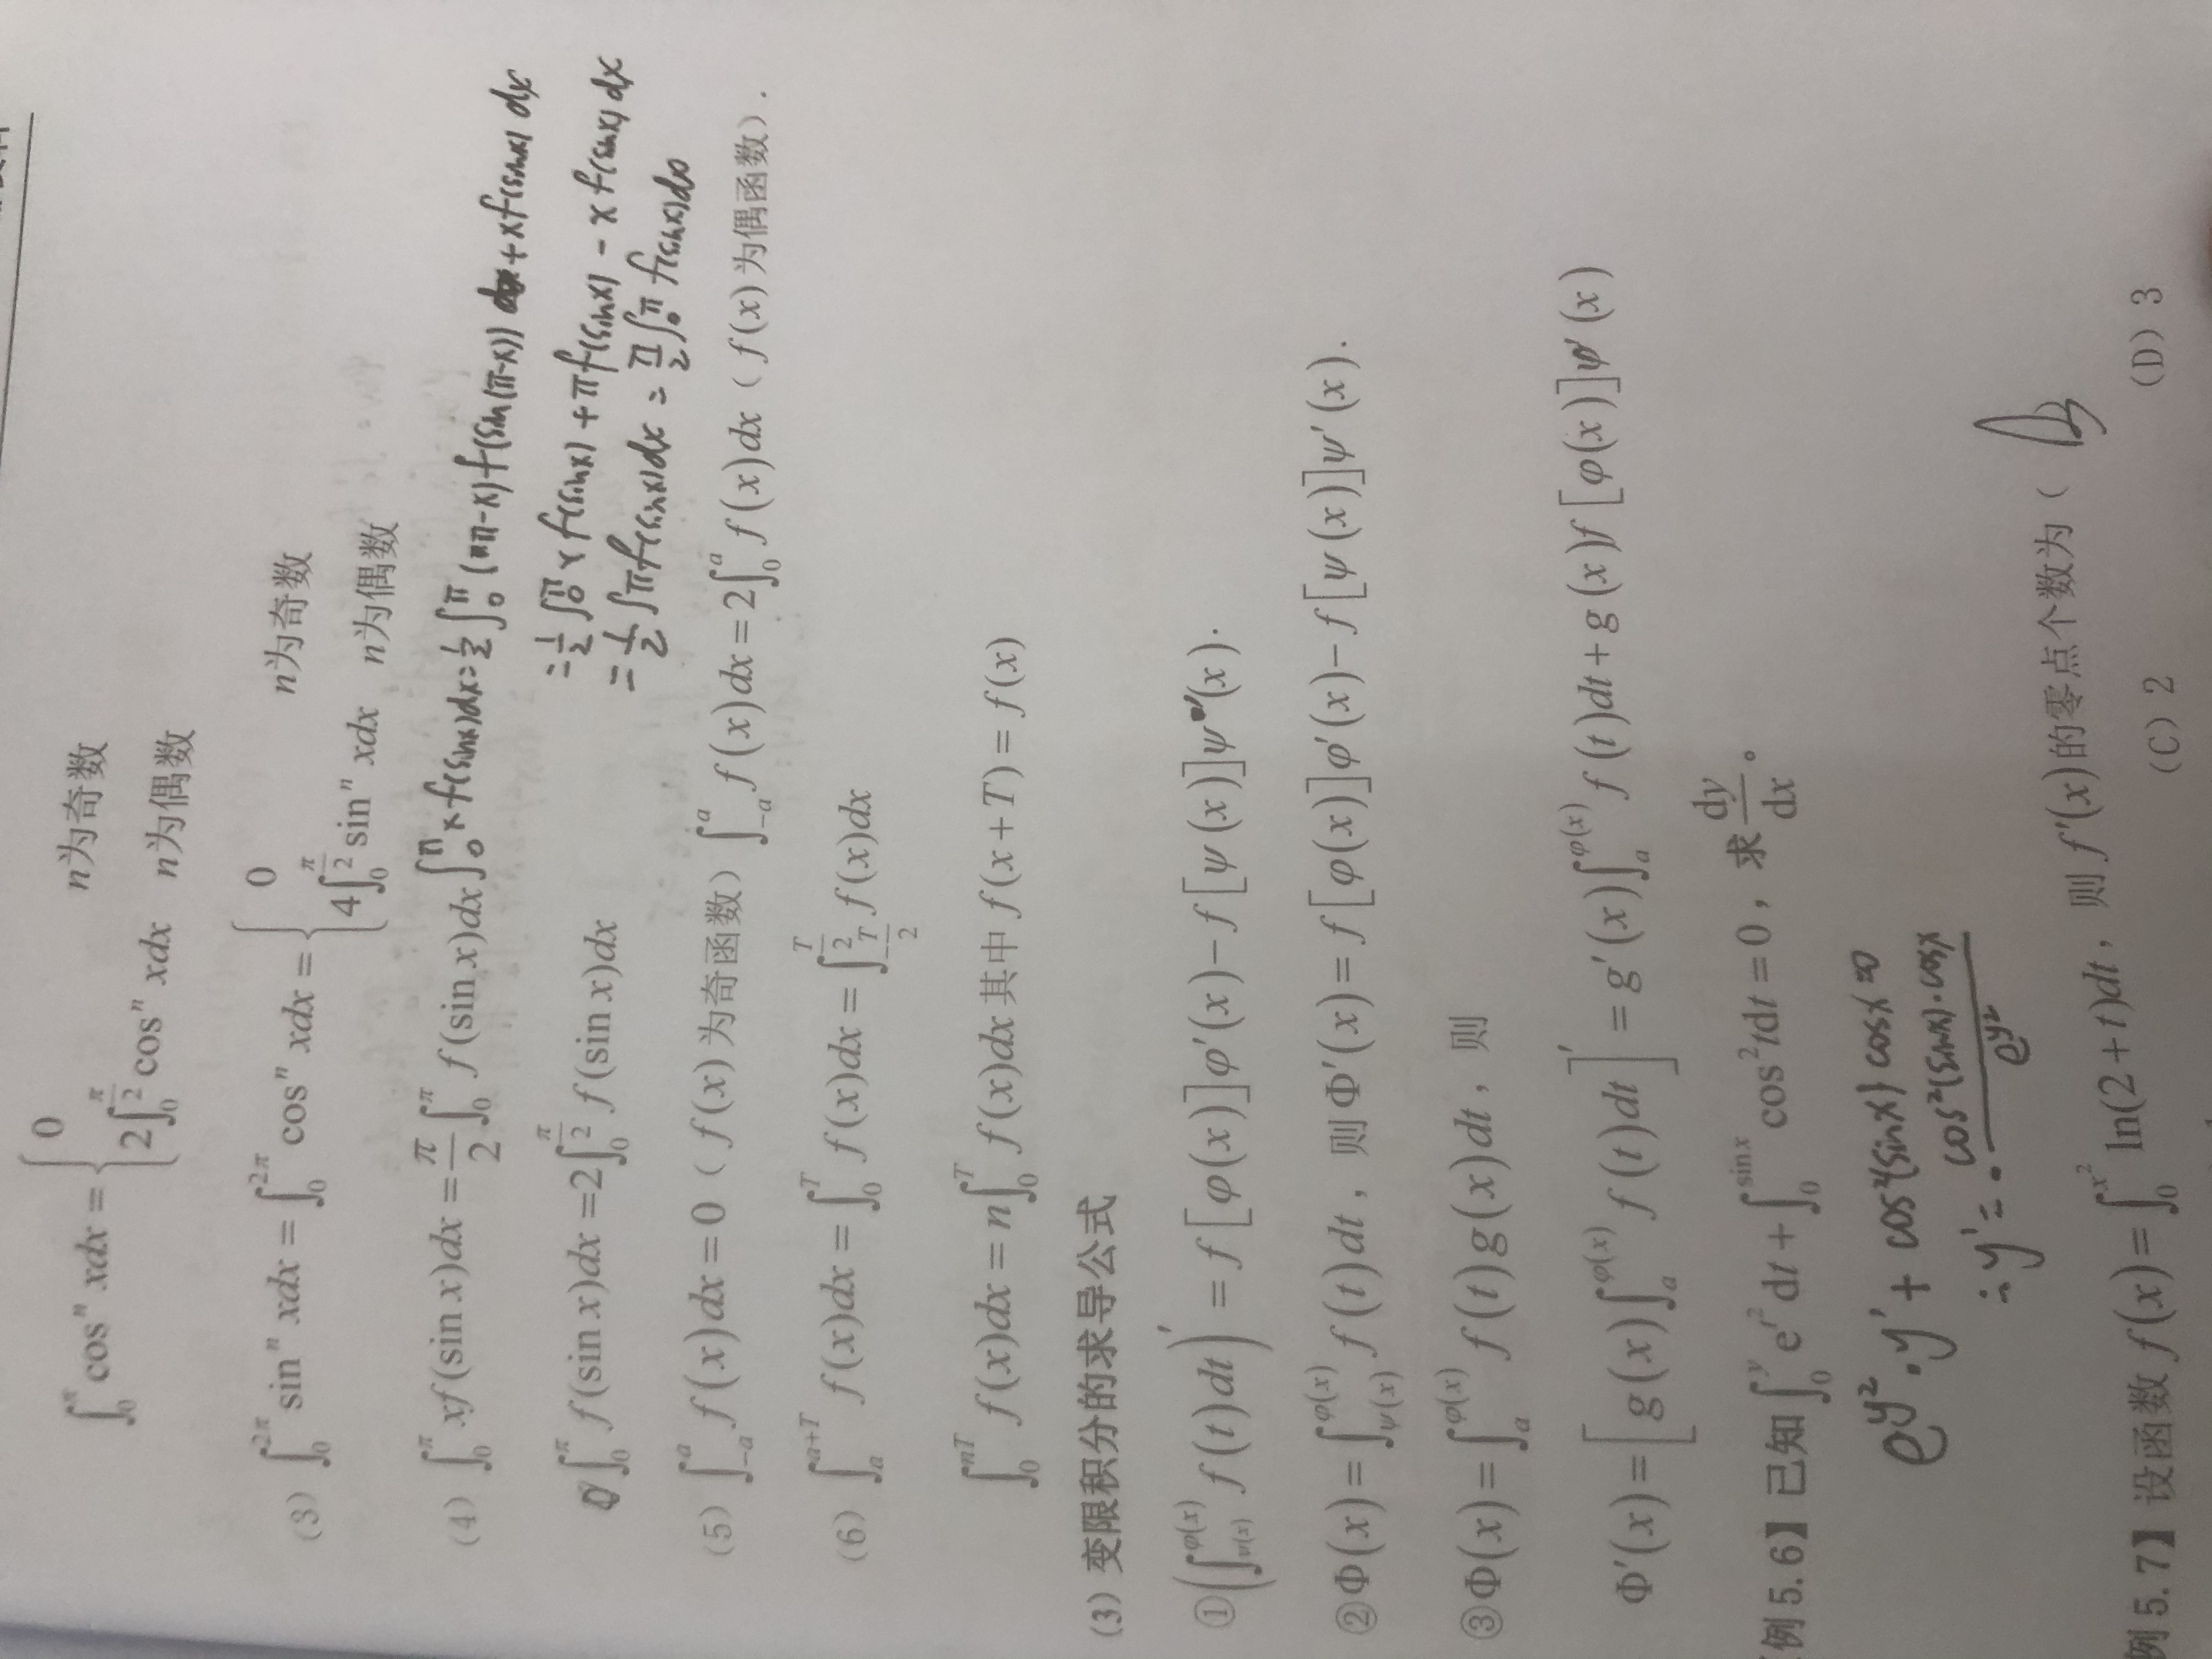 ∫₀^π cosⁿ xdx = { 0 n为奇数
2∫₀^(π/2) cosⁿ xdx n为偶数
(3) ∫₀^(2π) sinⁿ xdx = ∫₀^(2π) cosⁿ xdx = { 0 n为奇数
4∫₀^(π/2) sinⁿ xdx n为偶数
(4) ∫₀^π xf(sin x)dx = π/2 ∫₀^π f(sin x)dx ∫₀^π x f(sinx)dx = 1/2 ∫₀^π (π-x)f(sin(π-x)) + xf(sinx) dx
= 1/2 ∫₀^π x f(sinx) + πf(sinx) - x f(sinx) dx
∫₀^π f(sin x)dx = 2∫₀^(π/2) f(sin x)dx
= 1/2 ∫πf(sinx)dx = π/2 ∫₀^π f(sinx)dx
(5) ∫₋ₐ^a f(x)dx = 0 ( f(x) 为奇函数) ∫₋ₐ^a f(x)dx = 2∫₀^a f(x)dx ( f(x) 为偶函数).
(6) ∫ₐ^(a+T) f(x)dx = ∫₀^T f(x)dx = ∫_(-T/2)^(T/2) f(x)dx
∫₀^(nT) f(x)dx = n∫₀^T f(x)dx 其中 f(x+T) = f(x)
(3) 变限积分的求导公式
①(∫_ψ(x)^φ(x) f(t)dt)′ = f[φ(x)]φ′(x) − f[ψ(x)]ψ′(x).
②Φ(x) = ∫_ψ(x)^φ(x) f(t)dt，则 Φ′(x) = f[φ(x)]φ′(x) − f[ψ(x)]ψ′(x).
③Φ(x) = ∫ₐ^φ(x) f(t)g(x)dt，则
Φ′(x) = [g(x)∫ₐ^φ(x) f(t)dt]′ = g′(x)∫ₐ^φ(x) f(t)dt + g(x)f[φ(x)]φ′(x)
例 5.6】已知 ∫₀^y e^(t²) dt + ∫₀^(sin x) cos²tdt = 0，求 dy/dx。
e^(y²)·y′ + cos²(sinx) cosx = 0
∴y′ = - cos²(sinx)·cosx / e^(y²)
例 5.7】设函数 f(x) = ∫₀^(x²) ln(2+t)dt，则 f′(x) 的零点个数为（ B
(C) 2 (D) 3